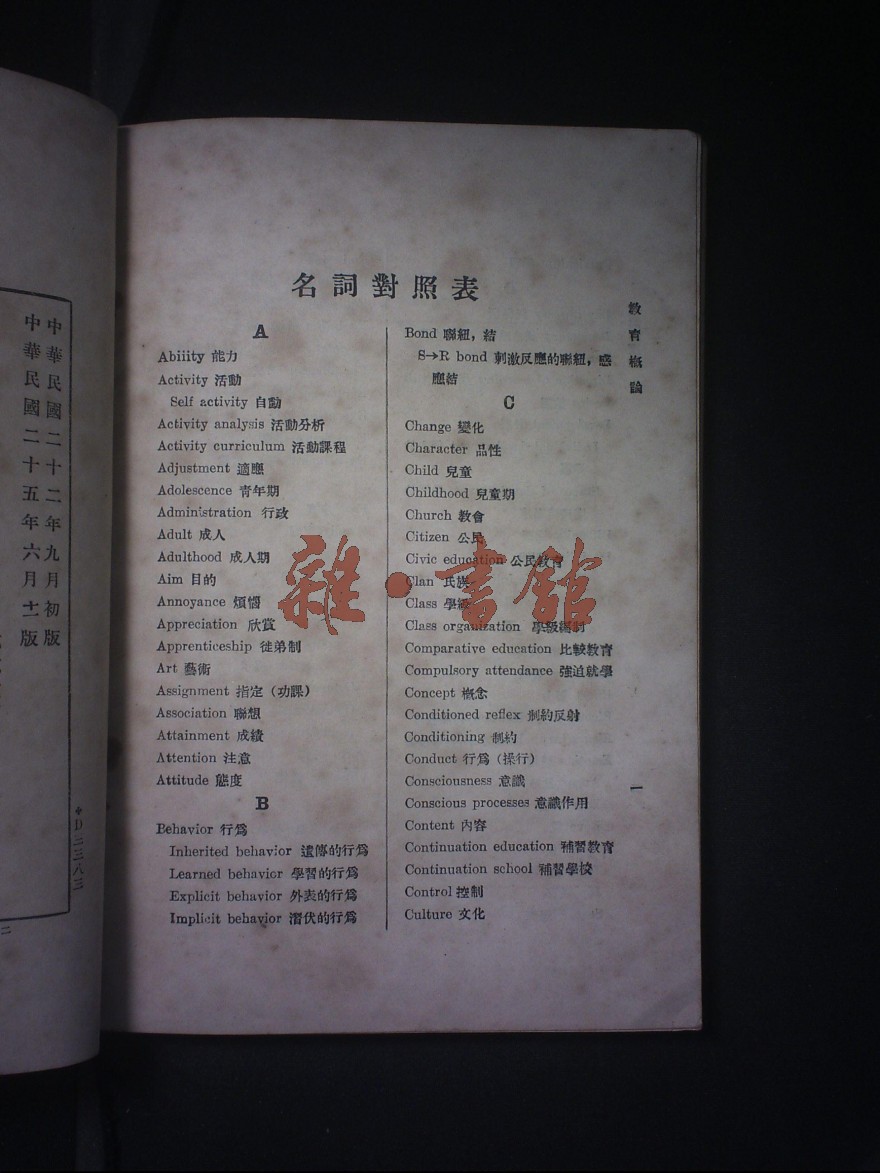 名詞對照表
A
Abiiity 能力
Activity 活動
Self activity 自動
Activity analysis 活動分析
Activity curriculum 活動課程
Adjustment 適應
Adolescence 青年期
Administration 行政
Adult 成人
Adulthood 成人期
Aim 目的
Annoyance 煩惱
Appreciation 欣賞
Apprenticeship 徒弟制
Art 藝術
Assignment 指定（功課）
Association 聯想
Attainment 成績
Attention 注意
Attitude 態度
B
Behavior 行爲
Inherited behavior 遺傳的行爲
Learned behavior 學習的行爲
Explicit behavior 外表的行爲
Implicit behavior 潛伏的行爲
Bond 聯紐，結
S→R bond 刺激反應的聯紐，感
應結
C
Change 變化
Character 品性
Child 兒童
Childhood 兒童期
Church 教會
Citizen 公民
Civic education 公民教育
Clan 氏族
Class 學級
Class organization 學級編制
Comparative education 比較教育
Compulsory attendance 強迫就學
Concept 概念
Conditioned reflex 制約反射
Conditioning 制約
Conduct 行爲（操行）
Consciousness 意識
Conscious processes 意識作用
Content 內容
Continuation education 補習教育
Continuation school 補習學校
Control 控制
Culture 文化
教育概論
一
雜·書館
中華民國二十二年九月初版
中華民國二十五年六月十二版
D三三八三
二